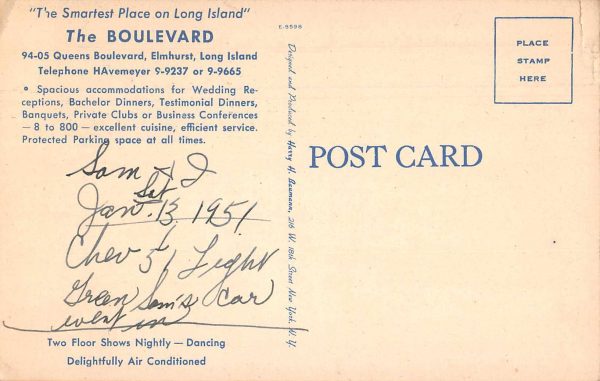 "The Smartest Place on Long Island"
The BOULEVARD
94-05 Queens Boulevard, Elmhurst, Long Island
Telephone HAvemeyer 9-9237 or 9-9665
• Spacious accommodations for Wedding Re-
ceptions, Bachelor Dinners, Testimonial Dinners,
Banquets, Private Clubs or Business Conferences
— 8 to 800 — excellent cuisine, efficient service.
Protected Parking space at all times.
Sam & I
Sat
Jan. 13, 1951
Chev 51 Light
Green Sam's car
went in
Two Floor Shows Nightly — Dancing
Delightfully Air Conditioned
E-5598
Designed and Produced by Harry H. Baumann, 216 W. 18th Street New York, N. Y.
POST CARD
PLACE
STAMP
HERE